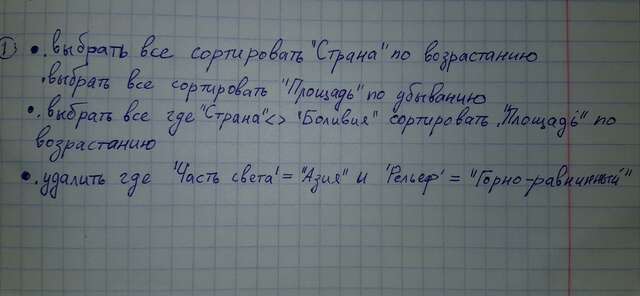 1) • .выбрать все сортировать "Страна" по возрастанию
.выбрать все сортировать "Площадь" по убыванию
• .выбрать все где "Страна" <> "Боливия" сортировать "Площадь" по
возрастанию
• .удалить где 'Часть света' = "Азия" и 'Рельеф' = "Горно-равнинный"